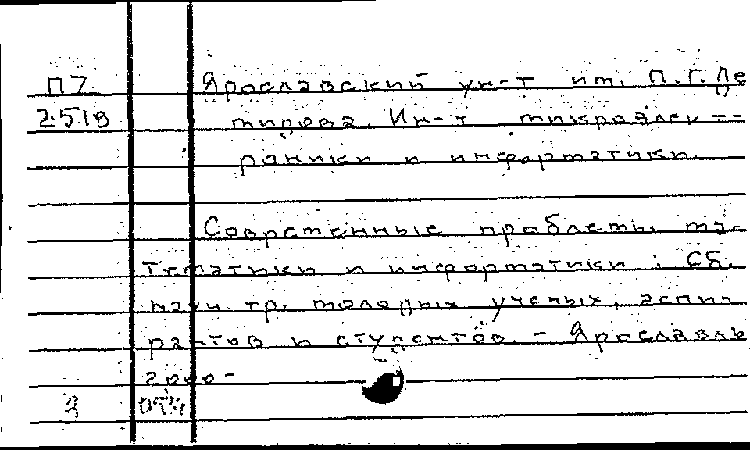 П7 Ярославский ун-т им. П.Г.Де
2518 мидова. Ин-т микроэлект
роники и информатики.
Современные проблемы ма-
тематики и информатики : Сб.
науч. тр. молодых ученых, аспи-
рантов и студентов. - Ярославль
2000-